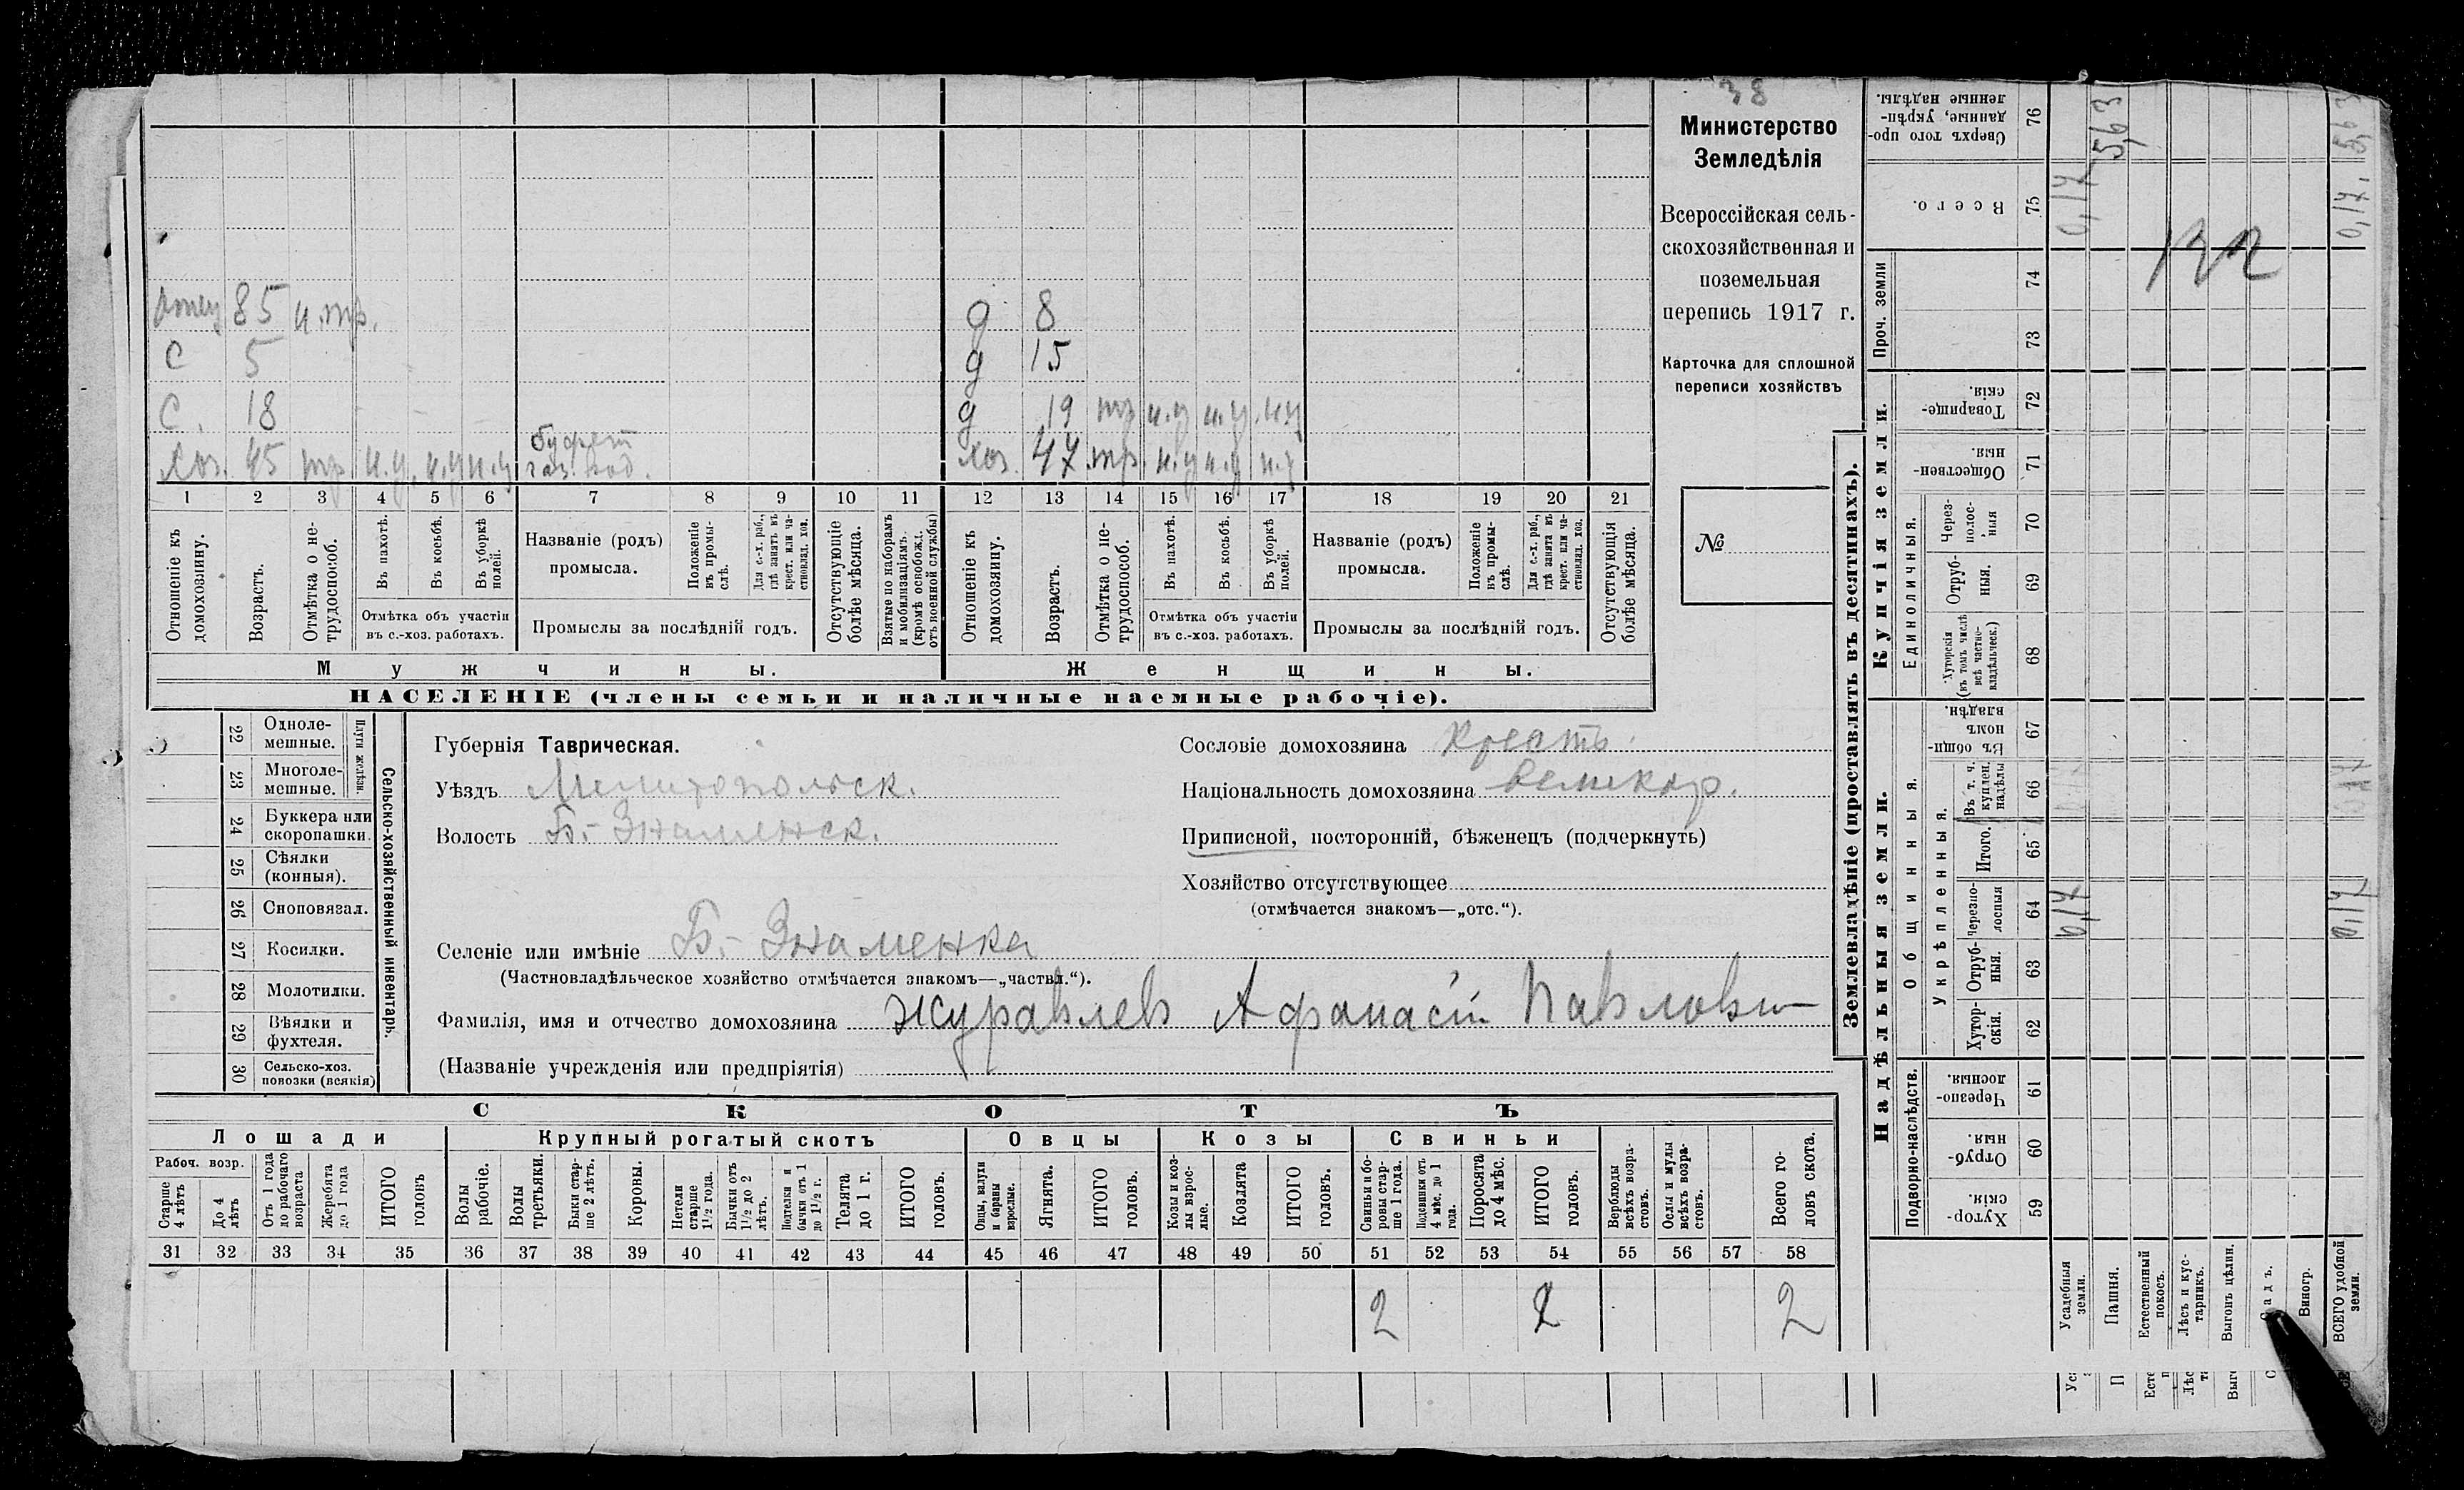 38
Министерство
Земледѣлія
Всероссійская сель-
скохозяйственная и
поземельная
перепись 1917 г.
Карточка для сплошной
переписи хозяйствъ
№
отец 85 н.тр.
д 8
С 5
д 15
С. 18
д 19 тр н.у н.у. н.у
Хоз. 45 тр н.у. н.у н.у
Хоз. 47 тр. н.у н.у н.у
1 2 3 4 5 6 7 8 9 10 11 12 13 14 15 16 17 18 19 20 21
Отношеніе къ домохозяину.
Возрастъ.
Отмѣтка о не-трудоспособ.
Въ пахотѣ.
Въ косьбѣ.
Въ уборкѣ полей.
Отмѣтка объ участіи
въ с.-хоз. работахъ.
Названіе (родъ)
промысла.
Положеніе въ промы-слѣ.
Для с.-х. раб., гдѣ занятъ въ крест. или ча-стновлад. хоз.
Промыслы за послѣдній годъ.
Отсутствующіе болѣе мѣсяца.
Взятые по наборамъ и мобилизаціямъ. (кромѣ освобожд. отъ военной службы)
Отношеніе къ домохозяину.
Возрастъ.
Отмѣтка о не-трудоспособ.
Въ пахотѣ.
Въ косьбѣ.
Въ уборкѣ полей.
Отмѣтка объ участіи
въ с.-хоз. работахъ.
Названіе (родъ)
промысла.
Положеніе въ промы-слѣ.
Для с.-х. раб., гдѣ занята въ крест. или ча-стновлад. хоз.
Промыслы за послѣдній годъ.
Отсутствующія болѣе мѣсяца.
Мужчины.
Женщины.
НАСЕЛЕНІЕ (члены семьи и наличные наемные рабочіе).
22 Одноле-мешные.
23 Многоле-мешные.
Плуги желѣзн.
24 Буккера или скоропашки.
25 Сѣялки (конныя).
26 Сноповязал.
27 Косилки.
28 Молотилки.
29 Вѣялки и фухтеля.
30 Сельско-хоз. повозки (всякія)
Сельско-хозяйственный инвентарь.
Губернія Таврическая.
Уѣздъ Мелитопольск.
Волость Б.-Знаменск.
Сословіе домохозяина Крест.
Національность домохозяина великор.
Приписной, посторонній, бѣженецъ (подчеркнуть)
Хозяйство отсутствующее
(отмѣчается знакомъ—„отс.“).
Селеніе или имѣніе Б.-Знаменка
(Частновладѣльческое хозяйство отмѣчается знакомъ—„частвл.“).
Фамилія, имя и отчество домохозяина Журавлев Афанасій Павлови
(Названіе учрежденія или предпріятія)
СКОТЪ
Лошади
Крупный рогатый скотъ
Овцы
Козы
Свиньи
Рабоч. возр.
Старше 4 лѣтъ
До 4 лѣтъ
Отъ 1 года до рабочаго возраста
Жеребята до 1 года
ИТОГО головъ
Волы рабочіе.
Волы третьяки.
Быки стар-ше 2 лѣтъ.
Коровы.
Нетели старше 1½ года.
Бычки отъ 1½ до 2 лѣтъ.
Подтелки и бычки отъ 1 до 1½ г.
Телята до 1 г.
ИТОГО головъ.
Овцы, валухи и бараны взрослые.
Ягнята.
ИТОГО головъ.
Козы и коз-лы взрос-лые.
Козлята
ИТОГО головъ.
Свиньи и бо-ровы стар-ше 1 года.
Подсвинки отъ 4 мѣс. до 1 года.
Поросята до 4 мѣс.
ИТОГО головъ.
Верблюды всѣхъ возра-стовъ.
Ослы и мулы всѣхъ возра-стовъ.
Всего го-ловъ скота.
31 32 33 34 35 36 37 38 39 40 41 42 43 44 45 46 47 48 49 50 51 52 53 54 55 56 57 58
2 2 2
Землевладѣніе (проставлять въ десятинахъ).
Надѣльныя земли.
Купчія земли.
Проч. земли
Подворно-наслѣдств.
Общинныя.
Укрѣпленныя.
Единоличныя.
Сверхъ того про-данные, укрѣп-ленные надѣлы. 76
Всего. 75
74
73
Товарище-скія. 72
Обществен-ныя. 71
Через-полос-ныя 70
Отруб-ныя. 69
Хуторскія (въ томъ числѣ всѣ частно-владѣльческ.) 68
Въ общин-номъ владѣн. 67
Въ т. ч. куплен. надѣлы 66
Итого. 65
Черезпо-лосныя 64
Отруб-ныя. 63
Хутор-скія. 62
Черезпо-лосныя. 61
Отруб-ныя. 60
Хутор-скія. 59
5,63
0,17
5,63
0,17
132
0,17
0,17
Усадебныя земли.
Пашня.
Естественный покосъ.
Лѣсъ и кус-тарникъ.
Выгонъ цѣлин.
Садъ.
Виногр.
ВСЕГО удобной земли.